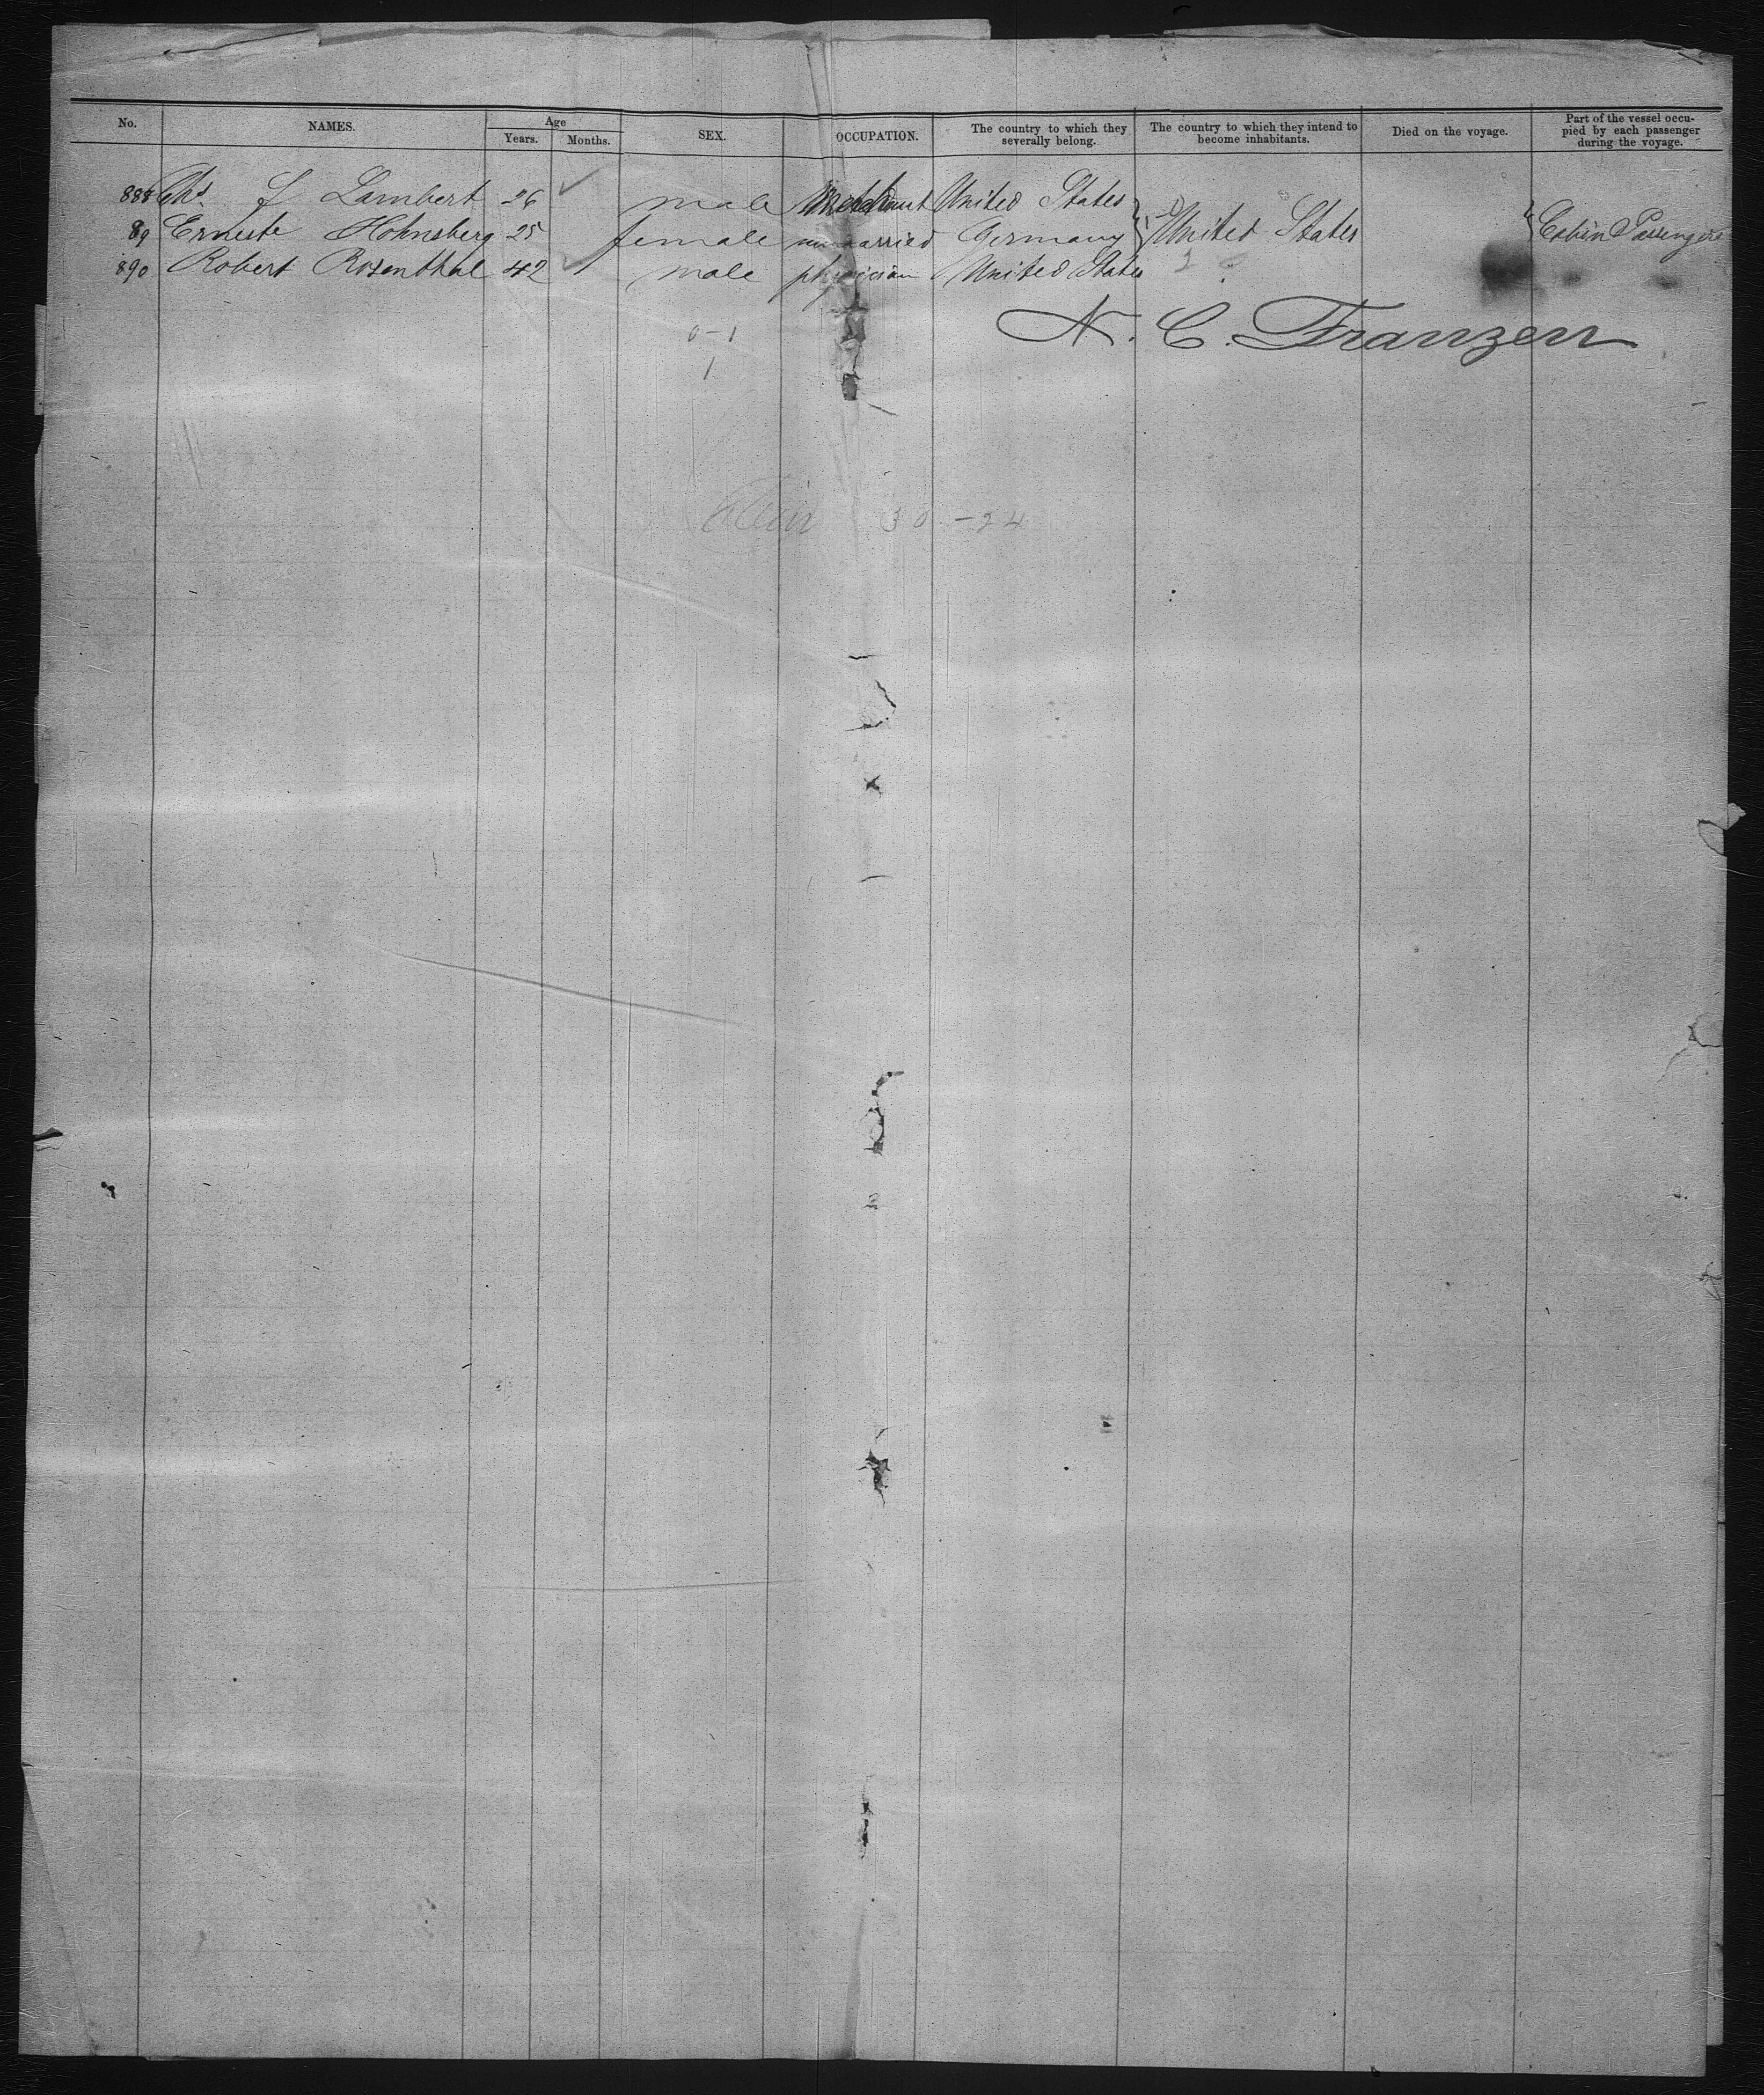 No. NAMES. Age Years. Months. SEX. OCCUPATION. The country to which they severally belong. The country to which they intend to become inhabitants. Died on the voyage. Part of the vessel occupied by each passenger during the voyage.
888 Chs. L Lambert 26 male Merchant United States
89 Erneste Hohnsberg 25 female unmarried Germany United States Cabin Passengers
890 Robert Rosenthal 42 male physician United States
0-1
1
N. C. Franzen
30 -24